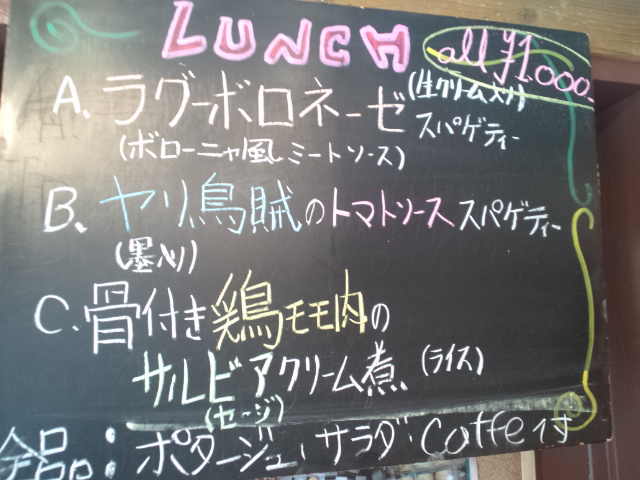 LUNCH
all ¥1.000.
A. ラグーボロネーゼ(生クリーム入り)スパゲティー
(ボローニャ風ミートソース)
B. ヤリ烏賊のトマトソーススパゲティー
(墨入り)
C. 骨付き鶏モモ肉の
サルビアクリーム煮、(ライス)
(セージ)
全品:ポタージュ、サラダ・Caffe付